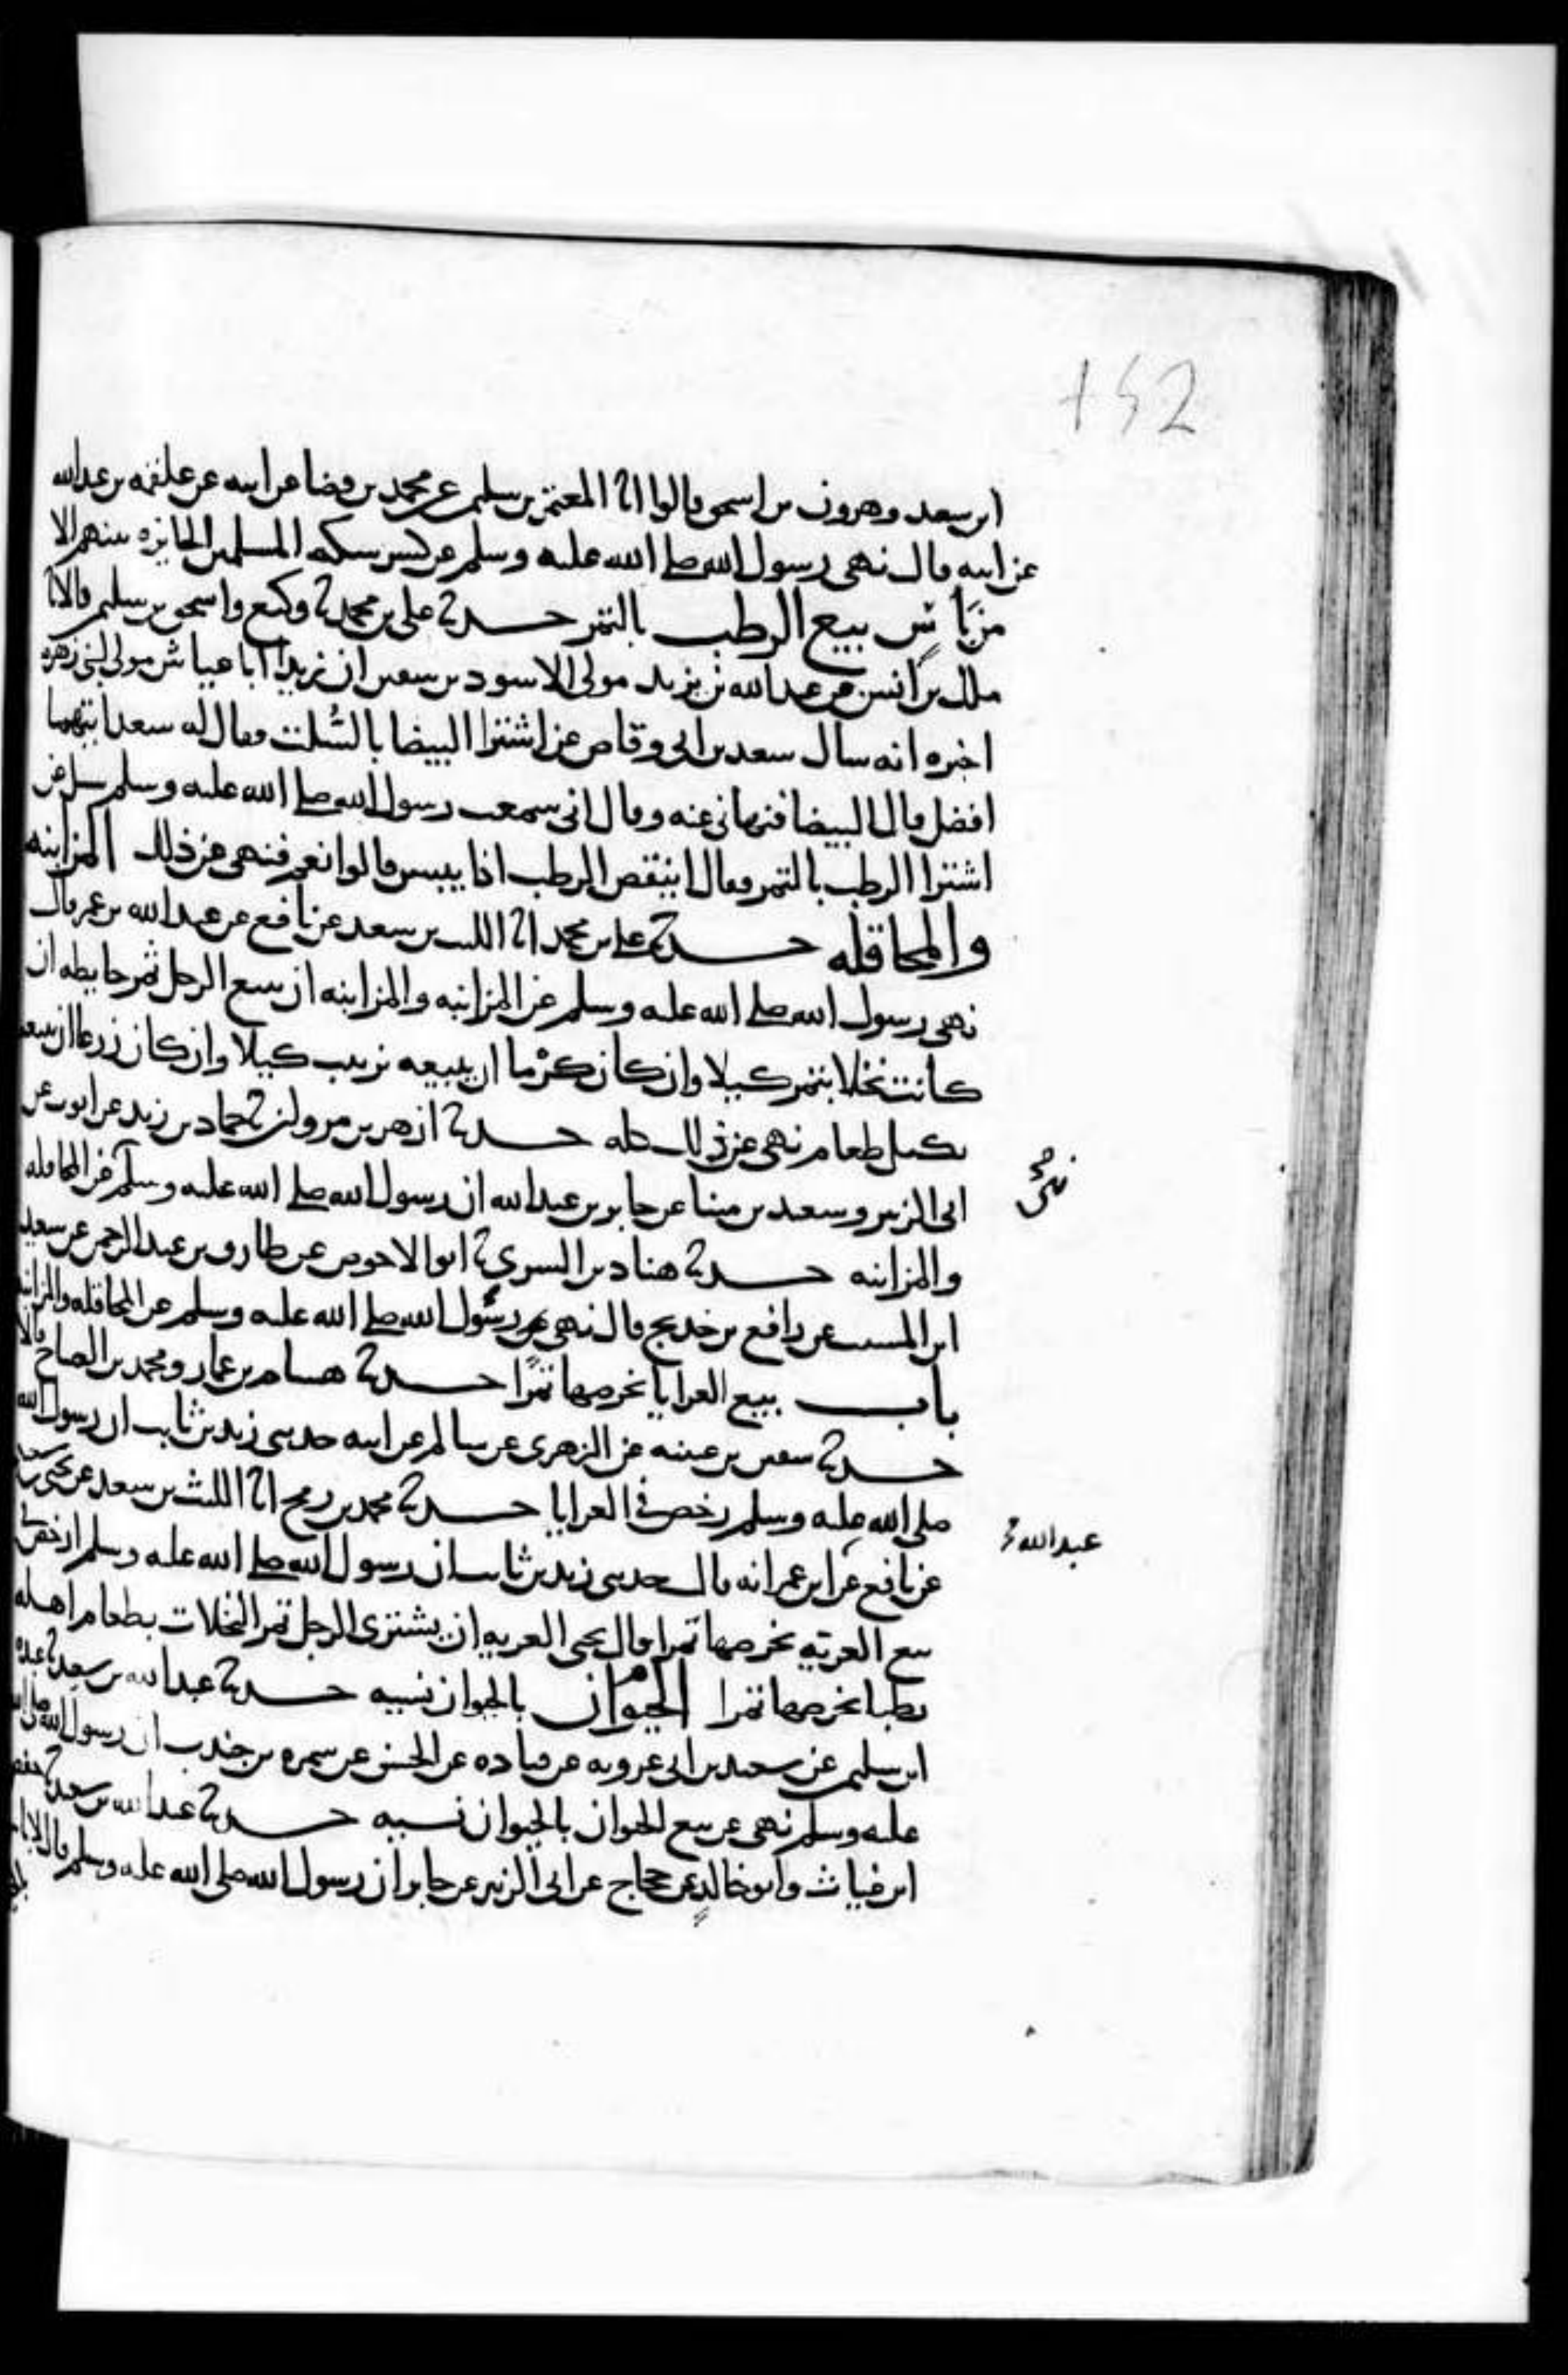 152
ابن سعيد وهرون بن اسحق قالوا انا المعتمر بن سليمن عن محمد بن فضا عن ابيه عن علقمه بن عبد الله
عن ابيه قال نهى رسول الله صلى الله عليه وسلم عن كسر سكه المسلمين الجايزه بينهم الا
من باس بيع الرطب بالتمر حدثنا علي بن محمد ثنا وكيع واسحق بن سليمن قالا ثنا
ملك بن انس عن عبد الله بن يزيد مولى الاسود بن سفين ان زيدا ابا عياش مولى لبني زهره
اخبره انه سال سعد بن ابي وقاص عن اشترا البيضا بالسُّلت فقال له سعد ايتهما
افضل قال البيضا فنهاني عنه وقال اني سمعت رسول الله صلى الله عليه وسلم سيل عن
اشترا الرطب بالتمر فقال اينقص الرطب اذا يبس قالوا نعم فنهى عن ذلك المزابنه
والمحاقله حدثنا علي بن محمد انا الليث بن سعد عن نافع عن عبد الله بن عمر قال
نهى رسول الله صلى الله عليه وسلم عن المزابنه والمزابنه ان يبيع الرجل ثمر حايطه ان
كانت نخلا بتمر كيلا وان كان كرْما ان يبيعه بزبيب كيلا وان كان زرعا ان يبيعه
بكيل طعام نهى عن ذلك كله حدثنا ازهر بن مروان ثنا حماد بن زيد عن ايوب عن
ابي الزبير وسعيد بن مينا عن جابر بن عبد الله ان رسول الله صلى الله عليه وسلم عن المحاقله
نهى
والمزابنه حدثنا هناد بن السري ثنا ابوا لاحوص عن طارق بن عبد الرحمن عن سعيد
ابن المسيب عن رافع بن خديج قال نهى رسول الله صلى الله عليه وسلم عن المحاقله والمزابنه
باب بيع العرايا بخرصها تمرًا حدثنا هشام بن عمار ومحمد بن الصباح قالا
حدثنا سفين بن عيينه عن الزهري عن سالم عن ابيه حدثني زيد بن ثابت ان رسول الله
صلى الله عليه وسلم رخص في العرايا حدثنا محمد بن رمح انا الليث بن سعد عن يحيى بن سعيد
عن نافع عن ابن عمر انه قال حدثني زيد بن ثابت ان رسول الله صلى الله عليه وسلم ارخص في
عبد الله
بيع العريّه بخرصها تمرا قال يحيى العريه ان يشتري الرجل تمر النخلات بطعام اهله
رطبا بخرصها تمرا الحيوان بالحيوان نسيه حدثنا عبد الله بن سعيد ثنا عبده
ابن سليمن عن سعيد بن ابي عروبه عن قتاده عن الحسن عن سمره بن جندب ان رسول الله صلى الله
عليه وسلم نهى عن بيع الحيوان بالحيوان نسيه حدثنا عبد الله بن سعيد ثنا حفص
ابن غياث وابو خالد عن حجاج عن ابي الزبير عن جابر ان رسول الله صلى الله عليه وسلم قال لا باس